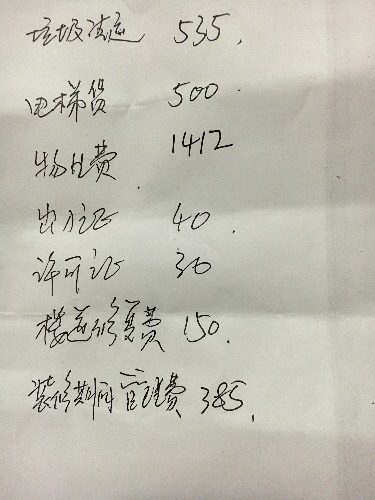 垃圾清运 535.
电梯货 500.
物业费 1412
出入证 40.
许可证 30
楼道修复费 150.
装修期间管理费 385.